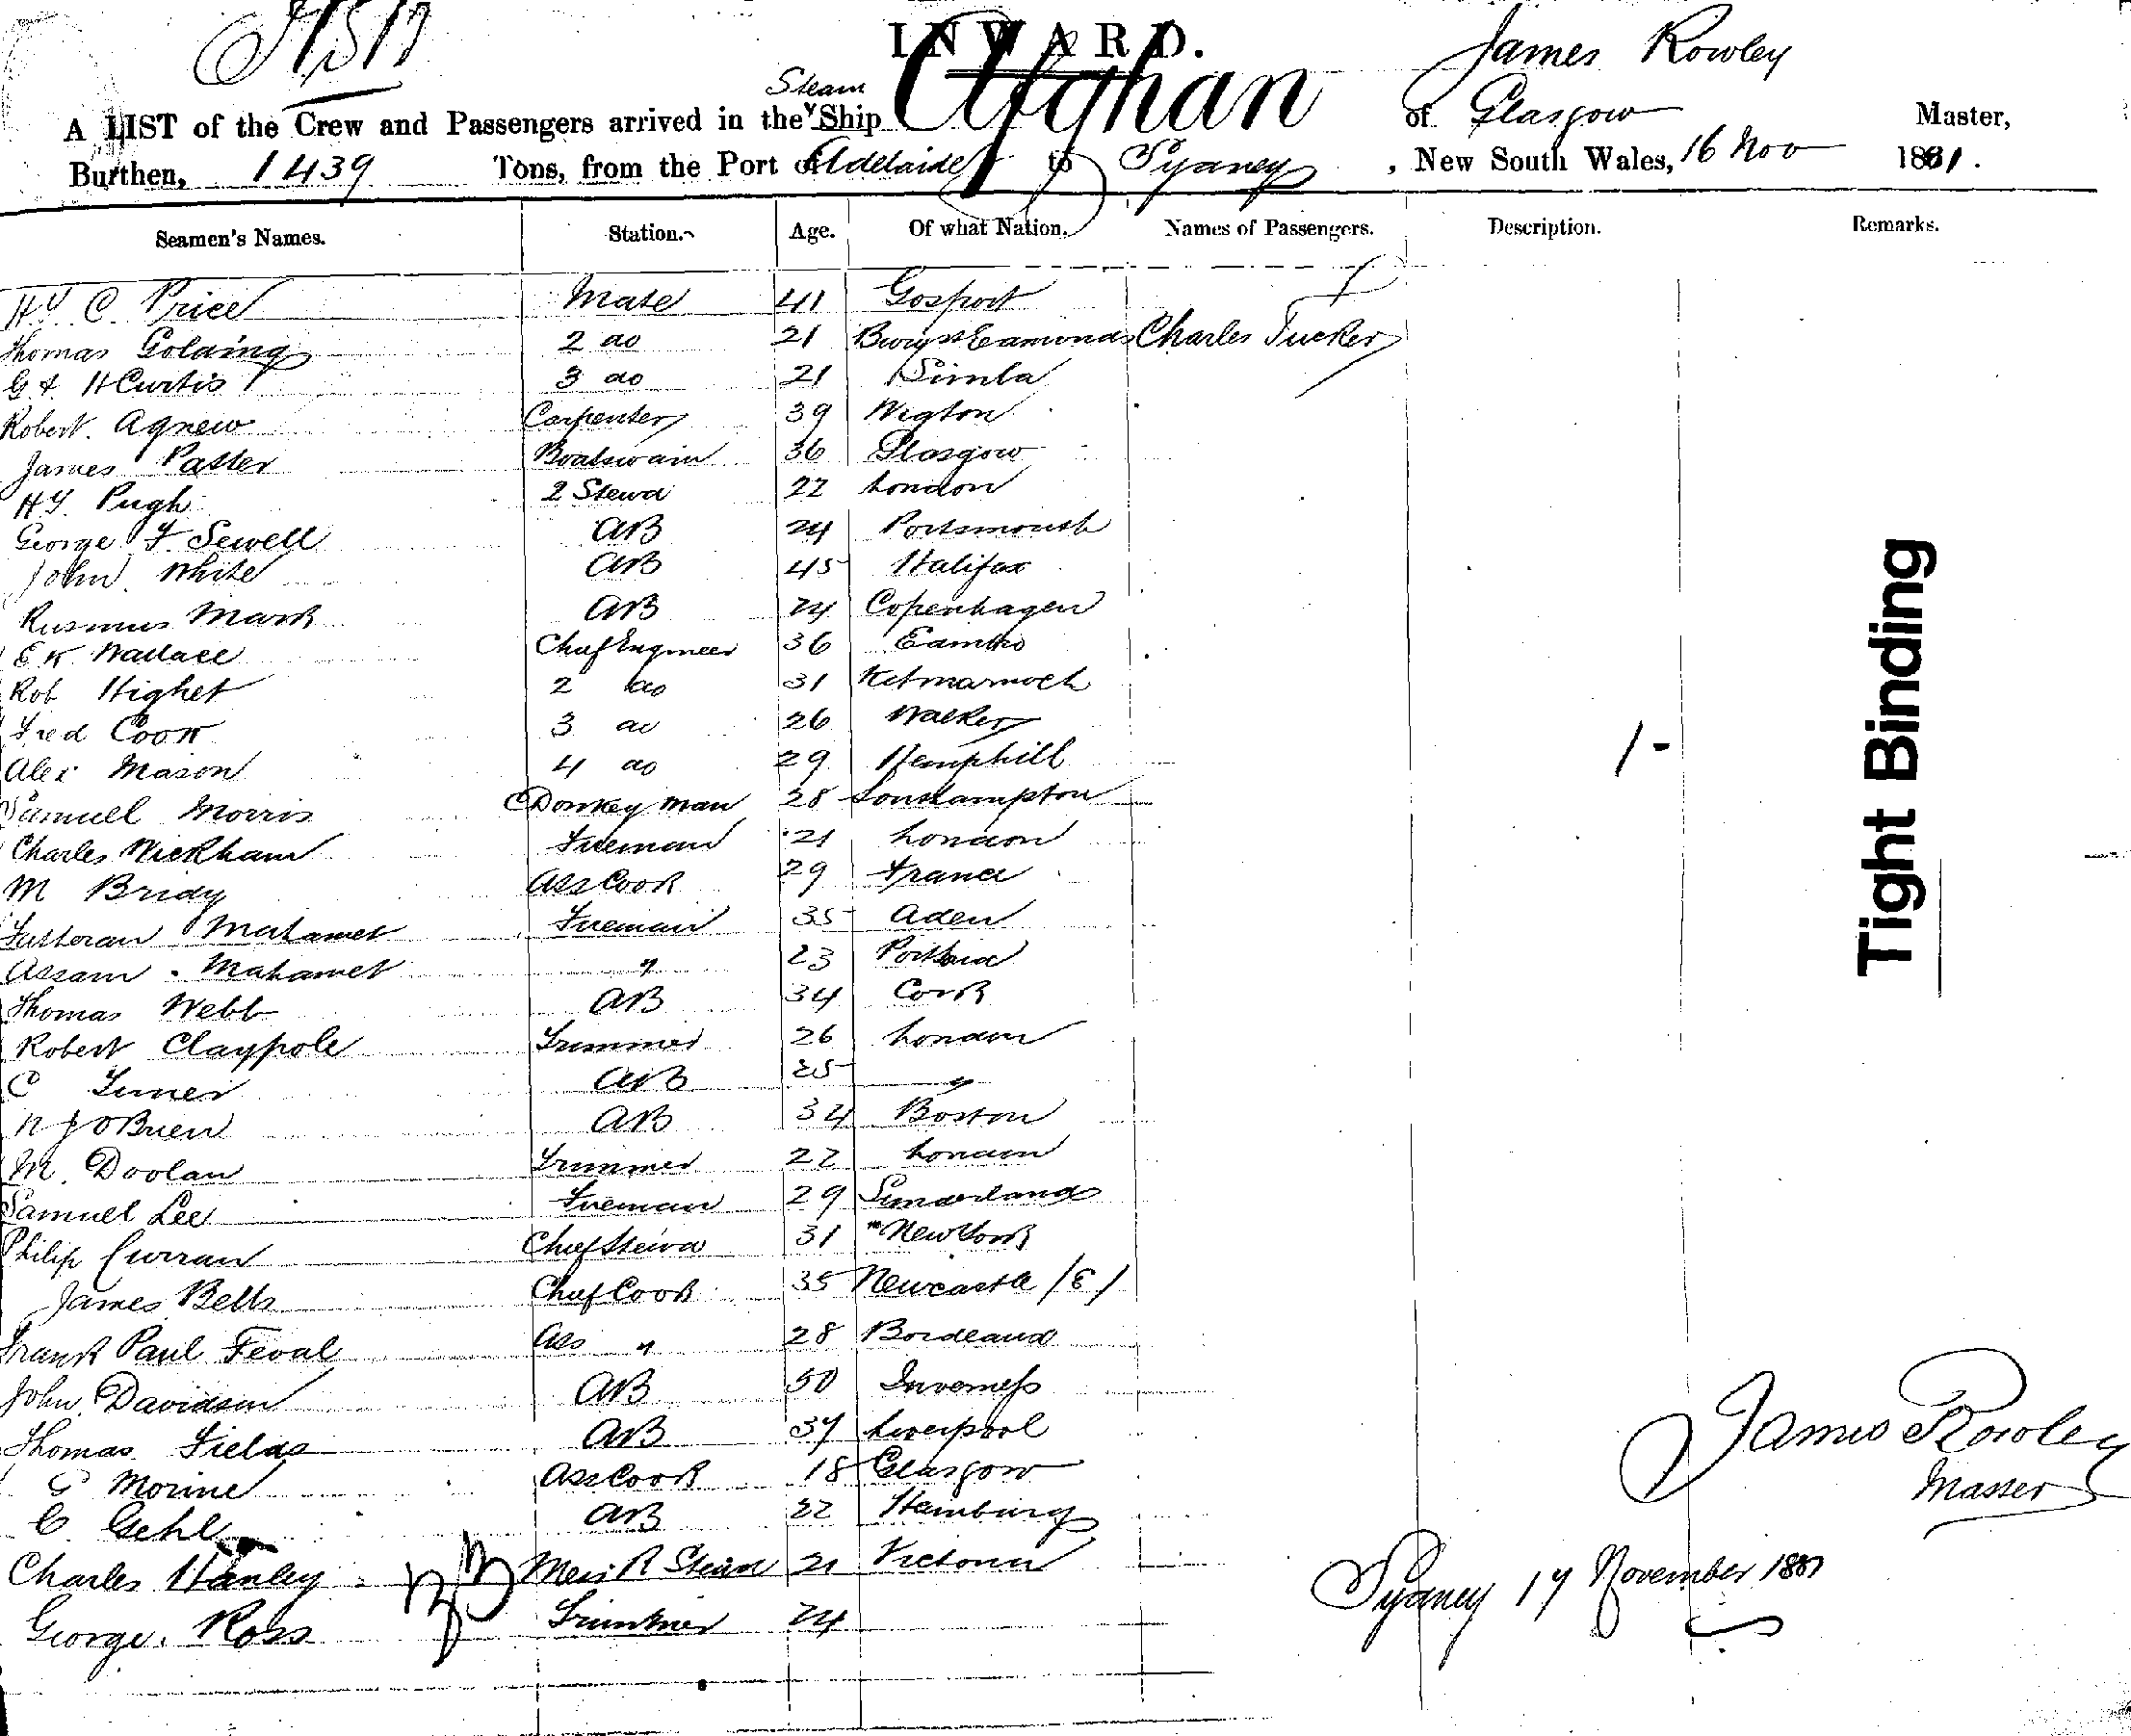 INWARD.
James Rowley
Steam
A LIST of the Crew and Passengers arrived in the Ship Afghan of Glasgow Master,
Burthen, 1439 Tons, from the Port of Adelaide to Sydney, New South Wales, 16 Nov 1881.
Seamen's Names. Station. Age. Of what Nation. Names of Passengers. Description. Remarks.
Hy C. Price Mate 41 Gosport
Thomas Golding 2 do 21 Bury St Edmonds Charles Tucker
G F H Curtis 3 do 21 Simla
Robert Agnew Carpenter 39 Wigton
James Patter Boatswain 36 Glasgow
Hy Pugh 2 Stewd 22 London
George F. Sewell AB 24 Portsmouth
John White AB 45 Halifax
Rusmus Mark AB 24 Copenhagen
E K Wallace Chief Engineer 36
Rob Highet 2 do 31 Kilmarnock
Fred Cook 3 do 26 Walker
Alex Mason 4 do 29 Hemphill
Samuell Morris Donkey man 28 Southampton
Charles Wickham Fireman 21 London
M Bridy Ass Cook 29 France
Mahamet Fireman 35 Aden
Assam Mahamet " 23 Port Said
Thomas Webb AB 34 Cork
Robert Claypole Trimmer 26 London
C AB 25 "
O'Brien AB 34 Boston
M. Doolan Trimmer 22 London
Samuel Lee Fireman 29 Sunderland
Philip Curran Chief Stewd 31 New York
James Bells Chief Cook 35 Newcastle /E/
Frank Paul Feval Ass " 28 Bordeaux
John Davidson AB 50 Inverness
Thomas Fields AB 37 Liverpool
G Morine Ass Cook 18 Glasgow
C. Gehl AB 22 Hamburg
Charles Hanley Mess R Stewd 21 Victoria
George Ross Trimmer 24
1/-
Tight Binding
James Rowley
Master
Sydney 17 November 1881